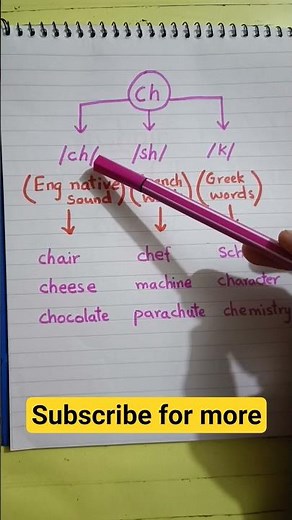 Ch
/ch/ /sh/ /k/
(Eng native (French (Greek
sound) words)
chair chef
cheese machine character
chocolate parachute chemistry
Subscribe for more